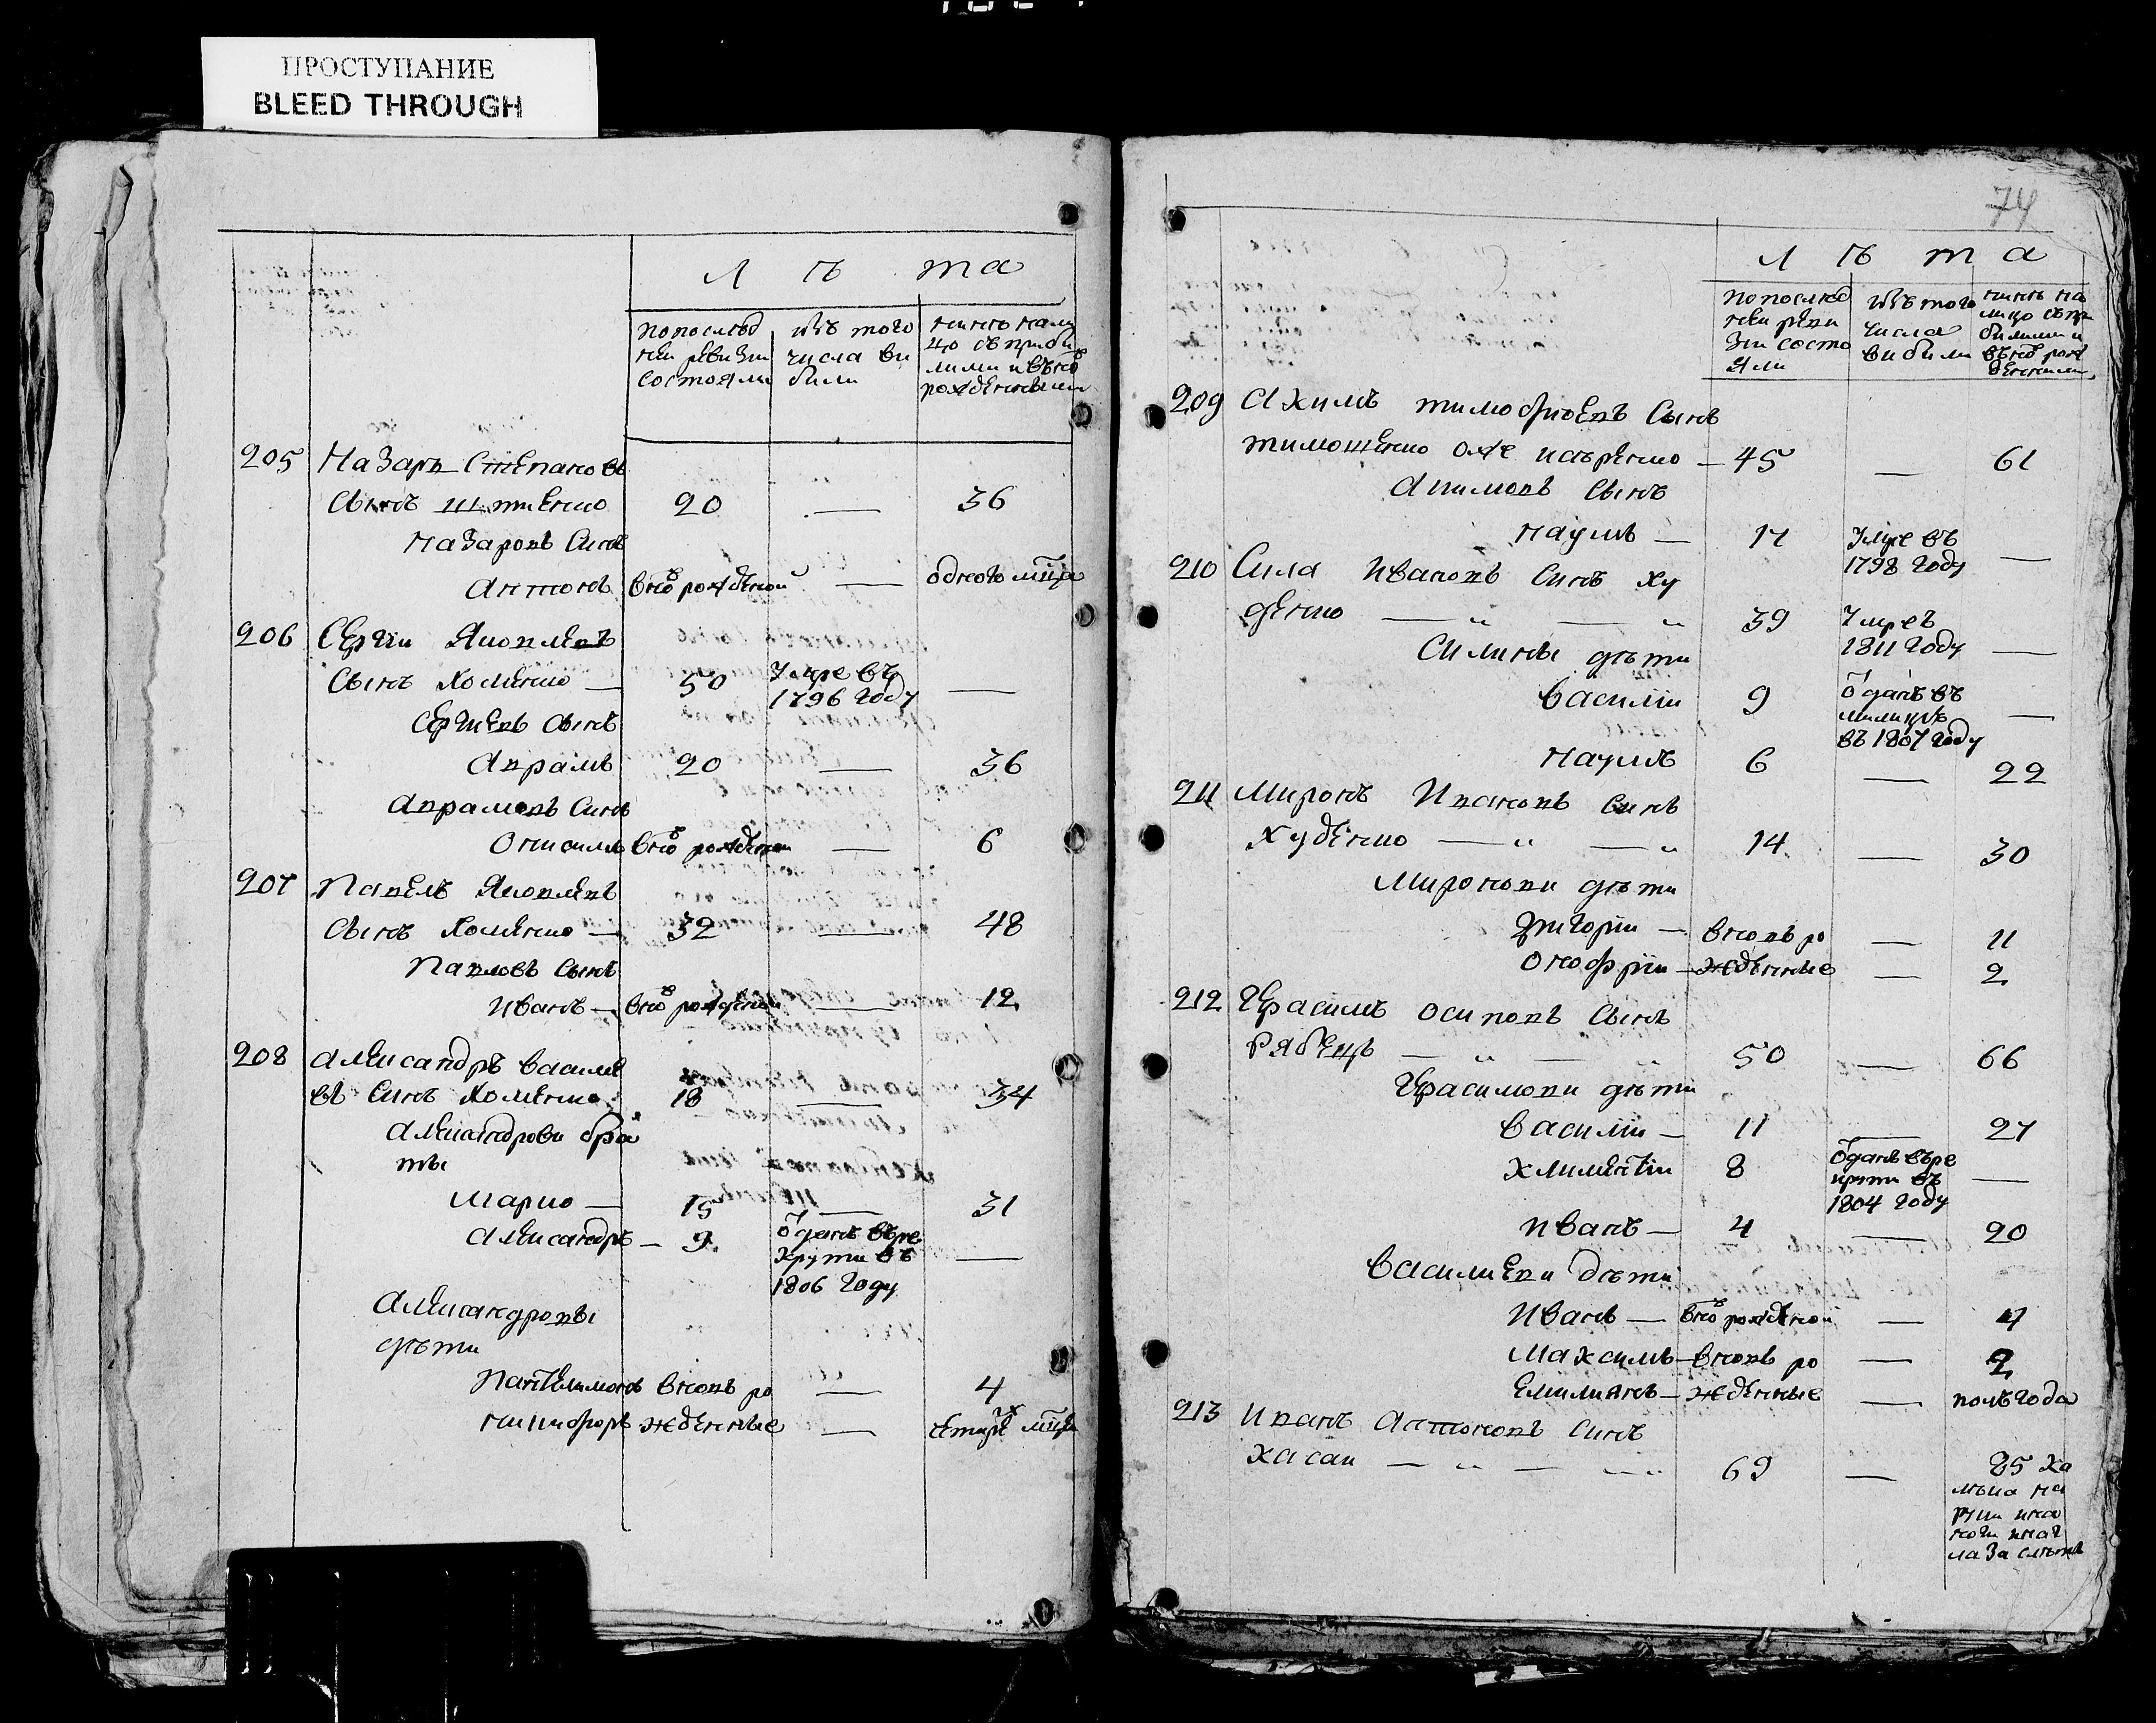 ПРОСТУПАНИЕ
BLEED THROUGH
Л ѣ та
по послѣд
ней ревизіи
состояли
изъ того
числа вы
были
нинѣ нали
цо съ прибы
лими и вновь
рожденными
205 Назаръ Степановъ
сынъ 20 — 36
Назаровъ синъ
Антонъ вновь рожденой — одного мѣца
206 Сергій Яковлевъ
сынъ Хоменко — 50 Умре въ
1796 году —
Сергіевъ сынъ
Аврамъ 20 — 36
Аврамовъ синъ
Онисимъ вновь рожденои — 6
207 Павелъ Яковлевъ
сынъ Хоменко — 32 — 48
Павловъ сынъ
Иванъ — вновь рожденои — 12
208 Александръ Василіе
въ синъ Хоменко 18 — 34
Александрови бра
ты
Марко — 15 — 31
Александръ — 9 Отданъ въ ре
крути въ
1806 году —
Александровы
дѣти
Пантелимонъ вновь ро — 4
Никифоръ жденные — четирехъ мѣцъ
74
Л ѣ т а
по послѣд
ней реви
зіи состо
яли
изъ того
числа
вибили
нинѣ на
лицо съ при
билими и
вновь рож
денними
209 Акимъ Тимофіевъ сынъ
Тимошенко онже — 45 — 61
Акимовъ сынъ
Наумъ — 17 Умре въ
1798 году —
210 Сила Ивановъ синъ Ху
денко — „ — „ 39 Умре въ
1811 году —
Силины дѣти
Василій 9 Отданъ въ
милицію
въ 1807 году —
Наумъ 6 — 22
211 Миронъ Ивановъ синъ
Худенко — „ — „ 14 — 30
Миронови дѣти
Григорій — вновь ро — 11
Онофрій — жденные — 2
212 Герасимъ Осиповъ сынъ
Рябецъ — „ — „ 50 — 66
Герасимови дѣти
Василій — 11 — 27
Климентій 8 Отданъ въ ре
крути въ
1804 году —
Иванъ — 4 — 20
Василиеви дѣти
Иванъ — вновь рожденои — 4
Максимъ — вновь ро — 2
Емилиянъ — жденные — полъ года
213 Иванъ Антоновъ синъ
Хасай — „ — „ 69 — 85 ка
лѣка на
руки и на
ноги и на г
лаза слѣпъ